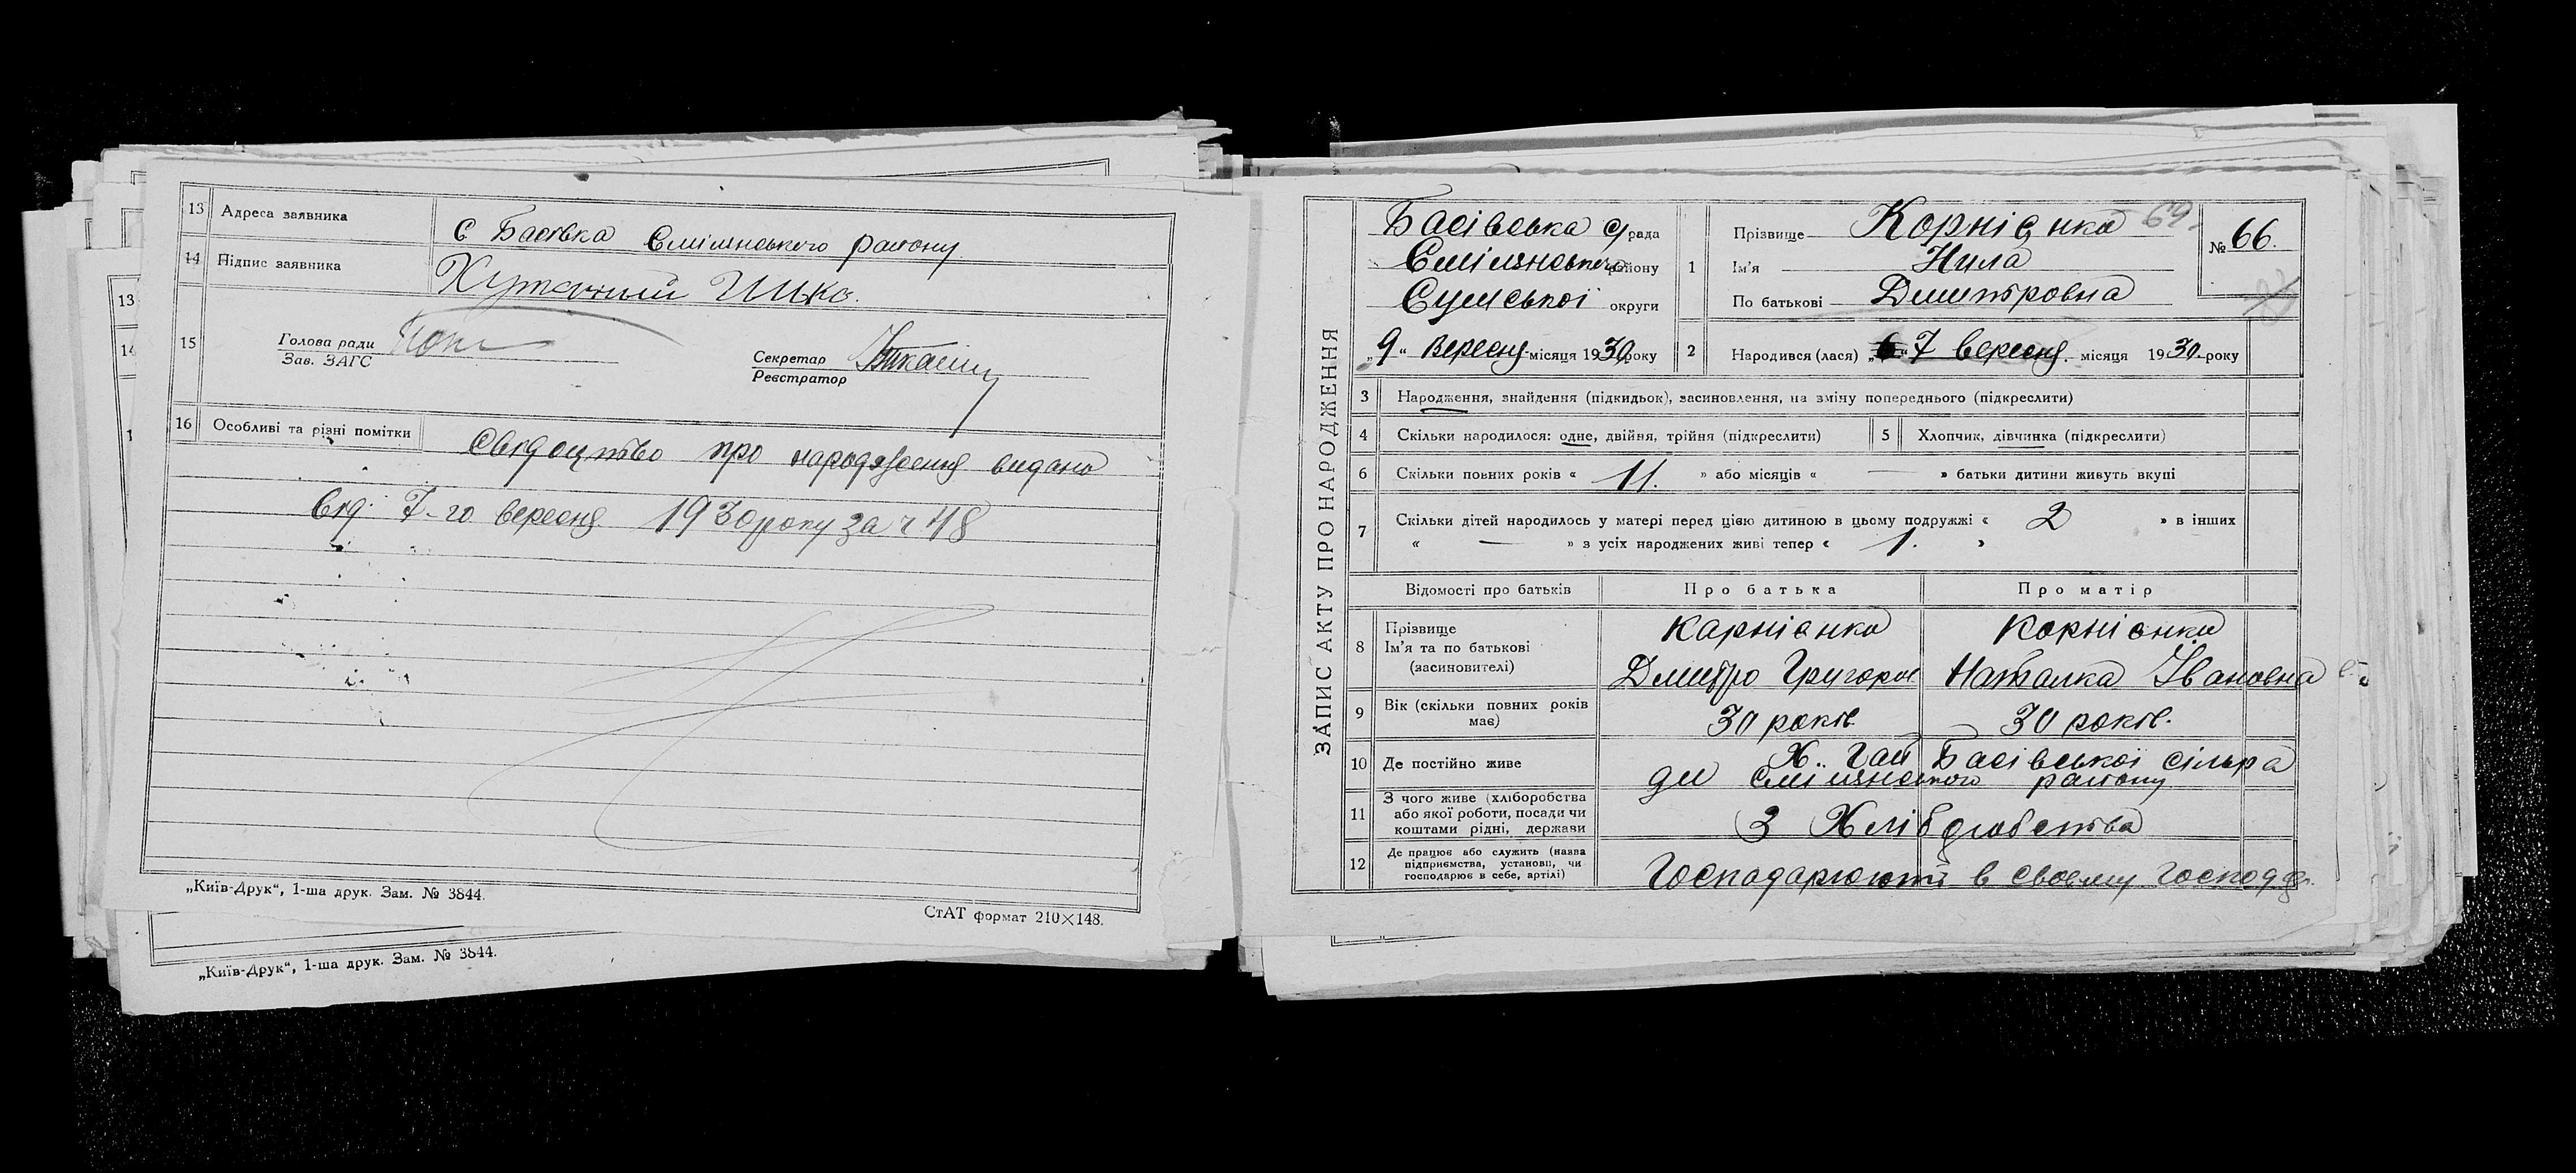 13 Адреса заявника с Басівка Смілянського району
14 Підпис заявника
15 Голова ради
Зав. ЗАГС
Секретар
Реєстратор
16 Особливі та різні помітки Свідоцтво про народження видано
від 7-го вересня 1930 року за ч 48
„Київ-Друк“, 1-ша друк. Зам. № 3844.
СтАТ формат 210×148.
„Київ-Друк“, 1-ша друк. Зам. № 3844.
13
14
ЗАПИС АКТУ ПРО НАРОДЖЕННЯ
Басівська с/рада
Смілянського району
Сумської округи
„9“ Вересня місяця 1930 року
1 Прізвище Корнієнко 69
Ім'я Нила
По батькові Дмитровна
№ 66.
2 Народився (лася) „6“ 7 вересня місяця 1930 року
3 Народження, знайдення (підкидьок), засиновлення, на зміну попереднього (підкреслити)
4 Скільки народилося: одне, двійня, трійня (підкреслити) 5 Хлопчик, дівчинка (підкреслити)
6 Скільки повних років « 11. » або місяців « — » батьки дитини живуть вкупі
7 Скільки дітей народилось у матері перед цією дитиною в цьому подружжі « 2 » в інших
« — » з усіх народжених живі тепер « 1. »
Відомості про батьків Про батька Про матір
8 Прізвище Карнієнко Корнієнко
Ім'я та по батькові
(засиновителі) Дмитро Григоров Наталка Івановна
9 Вік (скільки повних років має) 30 років. 30 років.
10 Де постійно живе Х. Гай Басівської сільра
ди Смілянського району
11 З чого живе (хліборобства
або якої роботи, посади чи
коштами рідні, держави З Хліборобства
12 Де працює або служить (назва
підприємства, установи, чи
господарює в себе, артілі) Господарюють в своєму господ